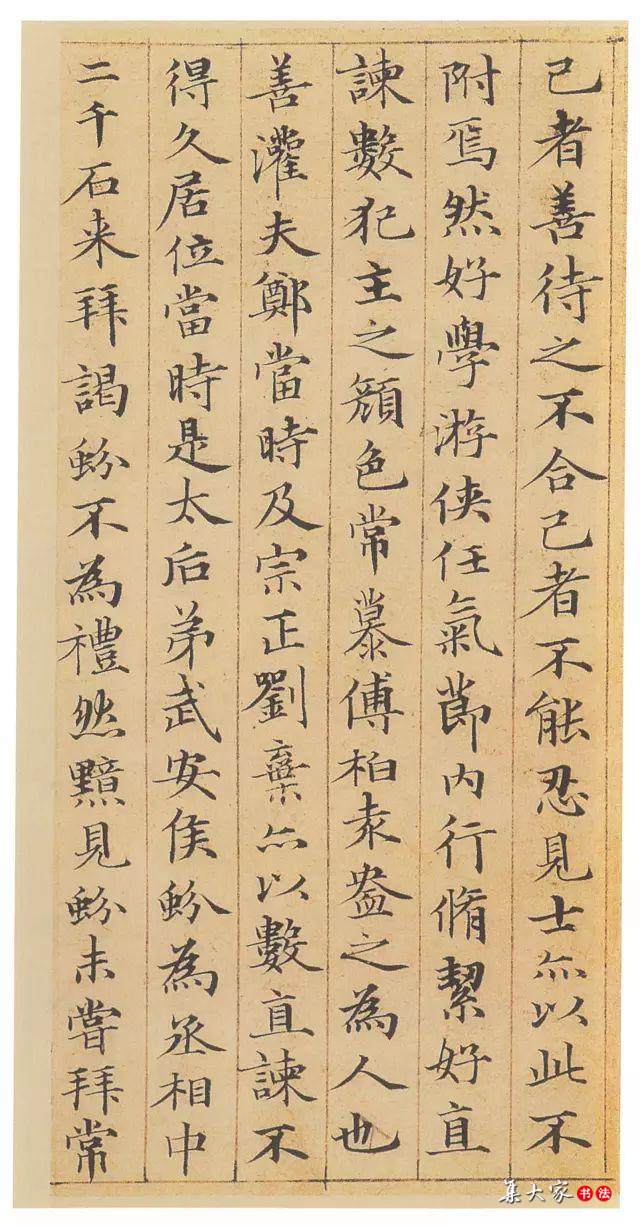 己者善待之不合己者不能忍見士亦以此不
附焉然好學游俠任氣節內行脩絜好直
諫數犯主之顏色常慕傅柏袁盎之為人也
善灌夫鄭當時及宗正劉棄亦以數直諫不
得久居位當時是太后弟武安侯蚡為丞相中
二千石来拜謁蚡不為禮然黯見蚡未嘗拜常
集大家书法